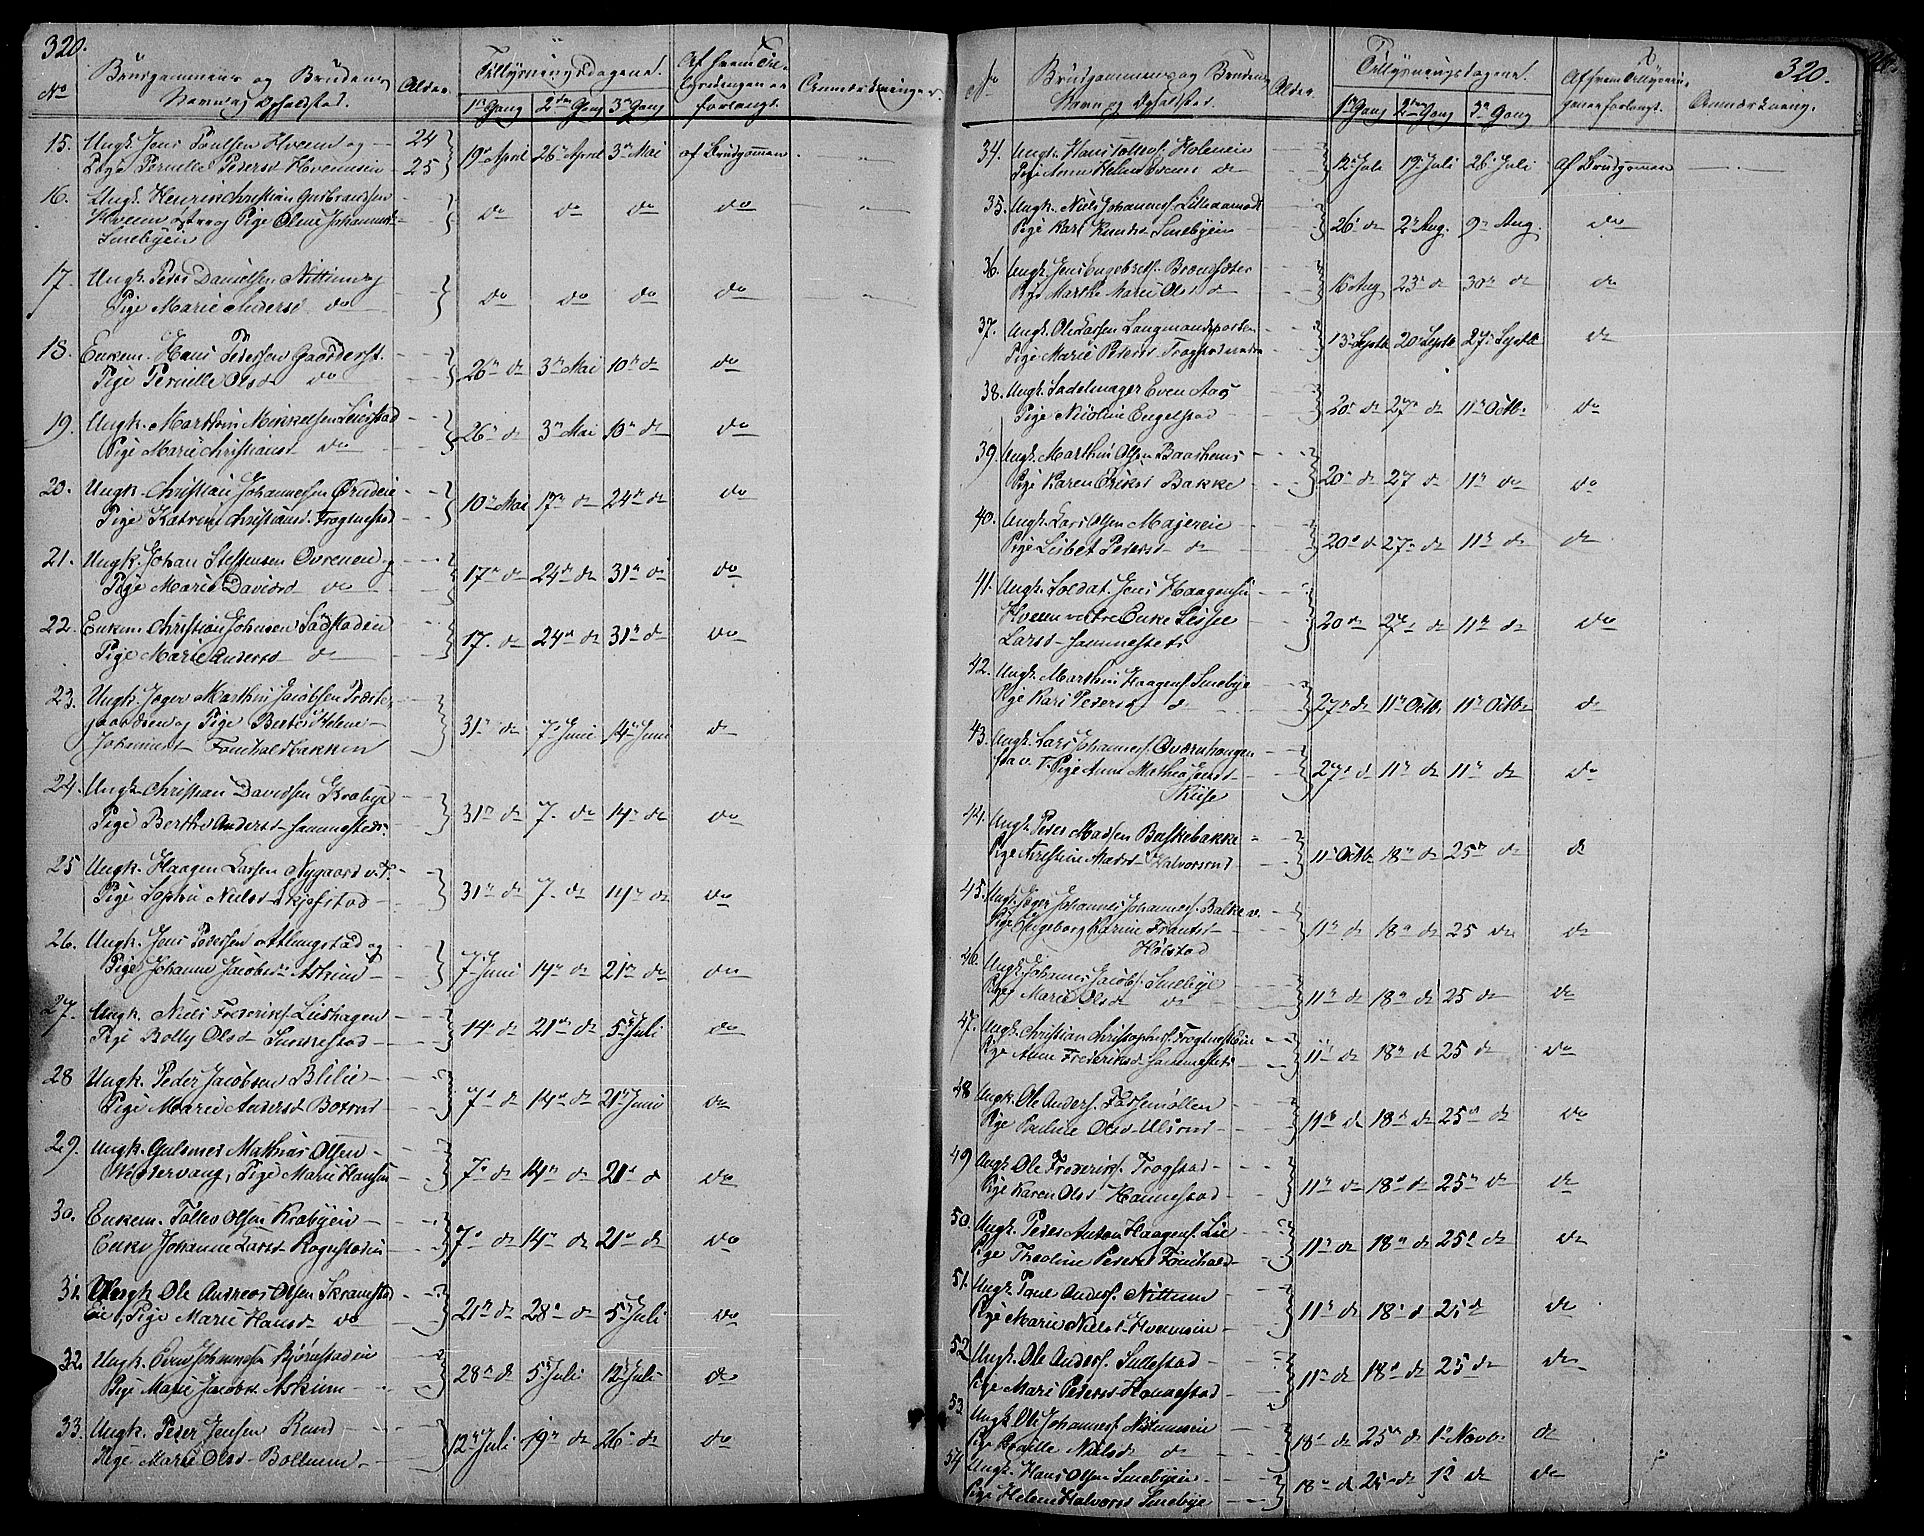 320.
No
Brudgommens og Brudens
Navn og Opholdsted.
Alder
Tillysningsdagene.
1ste Gang 2den Gang 3die Gang
Af hvem Til-
lysningen er
forlangt.
Anmærkninger.
15. Ungk. Jens Poulsen Hveem og 24
Pige Pernille Pedersd Hveemsein 25
19de April 26de April 3die Mai af Brudgommen
16. Ungk. Henrik Christian Gulbrandsen
Hveem østre og Pige Oline Johannesd
Smebyein
do do do do
17. Ungk. Peder Danielsen Nittium og
Pige Marie Andersd do
do do do do
18. Enkem. Hans Pedersen Gaarderst.
Pige Pernille Olsd do
26de do 3die Mai 10de do do
19. Ungk. Marthin Mikkelsen Leirstad
Pige Marie Christiansd do
26de do 3die Mai 10de do do
20. Ungk. Christian Johannesen Ørudeie
Pige Katrine Christiansd. Frognestad
10de Mai 17de do 24de do do
21. Ungk. Johan Steffensen Ovrenen og
Pige Marie Davidsd do
17de do 24de do 31te do do
22. Enkem. Christian Johnsen Sødstadein
Pige Marie Andersd do
17. do 24de do 31te do do
23. Ungk. Jæger Marthin Jacobsen Præste-
gaardsen og Pige Berthe Helene
Johannesd Fouchaldbakken
31te do 7de Juni 14de Juni do
24. Ungk. Christian Davidsen Krabye
Pige Berthe Andersd Sammesteds
31te do 7. do 14de do do
25 Ungk. Haagen Larsen Nygaard v. T.
Pige Sophie Nielsd Skjefstad
31te do 7. do 14de do do
26. Ungk. Jens Pedersen Attlungstad og
Pige Johanne Jacobsd Askim
7de Juni 14de do 21de do do
27. Ungk. Niels Frederiks. Lieshagen
Pige Bolly Olsd Sundrestad
14 do 21de do 5te Juli do
28 Ungk. Peder Jacobsen Blilie
Pige Marie Andersd Boxrud
7de do 14de do 21de Juni do
29. Ungk. Gulsmed Mathias Olsen
Westervang, Pige Marie Hansen
7de do 14de do 21de do do
30. Enkem. Tollev Olsen Krabyein
Enke Johanne Larsd Rognstadein
7de do 14de do 21de do do
31. Ungk Ole Andreas Olsen Skramstad
Eie, Pige Marie Hansd do
21de do 28de do 5te Juli do
32. Ungk. Even Johannesen Bjørnstadein
Pige Marie Jacobsd Askim
28de do 5te Juli 12te Juli do
33. Ungk. Peder Jensen Rend
Pige Marie Olsd Bollumen
12te Juli 19de do 26de do do
320.
No
Brudgommens og Brudens
Navn og Opholdsted.
Alder.
Tillysningsdagene.
1ste Gang 2den Gang 3die Gang
Af hvem Tillysnin-
gen er forlangt.
Anmærkning.
34. Ungk. Hans Tollefs. Holeneie
Pige Anne Helene Evensd do
12te Juli 19de Juli 26de Juli af Brudgommen
35. Ungk. Niels Johannes. Lillaamodt
Pige Kari Knudsd Smebyein
26de do 2den Aug. 9de Aug. do
36. Ungk. Jens Engebrets. Brendsæter
Pige Marthe Marie Olsd do
16 Aug 23de do 30te do do
37. Ungk. Ole Larsen Langmandsporten
Pige Marie Pedersd Frogstad
13de Septb 20de Septb 27de Septb do
38. Ungk. Sadelmager Even Aas
Pige Nicoline Engelstad
20de do 27de do 11te Octb. do
39. Ungk. Marthin Olsen Baashuus
Pige Karen Eriksd Bakke
20de do 27 do 11te do do
40. Ungk. Lars Olsen Majereie
Pige Lisbet Pedersd do
20de do 27de do 11te do do
41. Ungk. Soldat. Jens Haagensen
Hveem vestre Enke Lisze
Larsd Sammesteds
20de do 27de do 11te do do
42. Ungk. Marthin Haagens. Smebye
Pige Kari Pedersd do
27de do 11te Octb. 11te Octb. do
43. Ungk. Lars Johannes. Oværnhougen
fra v. T. Pige Anne Mathea Jensd
Kise
27de do 11te do 11te do do
44. Ungk. Peder Madsen Baskebakke
Pige Kirstine Madsd Halvorsrud
11te Octb. 18de do 25de do do
45. Ungk. Jæger Johannes Johannes. Balke v.
Pige Ingeborg Karine Frantsd
Holstad
11te do 18de do 25 do do
46. Ungk. Johannes Jacobs. Smebye
Pige Marie Olsd do
11te do 18de do 25 do do
47. Ungk. Christian Christophers. Frognestadeie
Pige Anne Frederiksd Sammesteds
11te do 18de do 25 do do
48 Ungk. Ole Anders. Fossemøllen
Pige Pauline Olsd Ulsrud
11te do 18de do 25de do do
49 Ungk. Ole Frederiks. Frogstad
Pige Karen Olsd Hannestad
11te do 18de do 25de do do
50. Ungk. Peder Anton Haagens. Lie
Pige Theoline Pedersd Fouchald
11te do 18de do 25de do do
51. Ungk. Poul Anders. Nittum
Pige Marie Nielsd Hveemsein
11te do 18de do 25 do do
52 Ungk. Ole Anders. Sullestad
Pige Mari Pedersd Honnestad
11te do 18de do 25 do do
53 Ungk. Ole Johannes. Nittumsein
Pige Pernille Nielsd do
18de do 25de do 1ste Novb. do
54 Ungk. Hans Olsen Smebyein
Pige Helene Halvorsd Smebye
18de do 25de do 1ste do do